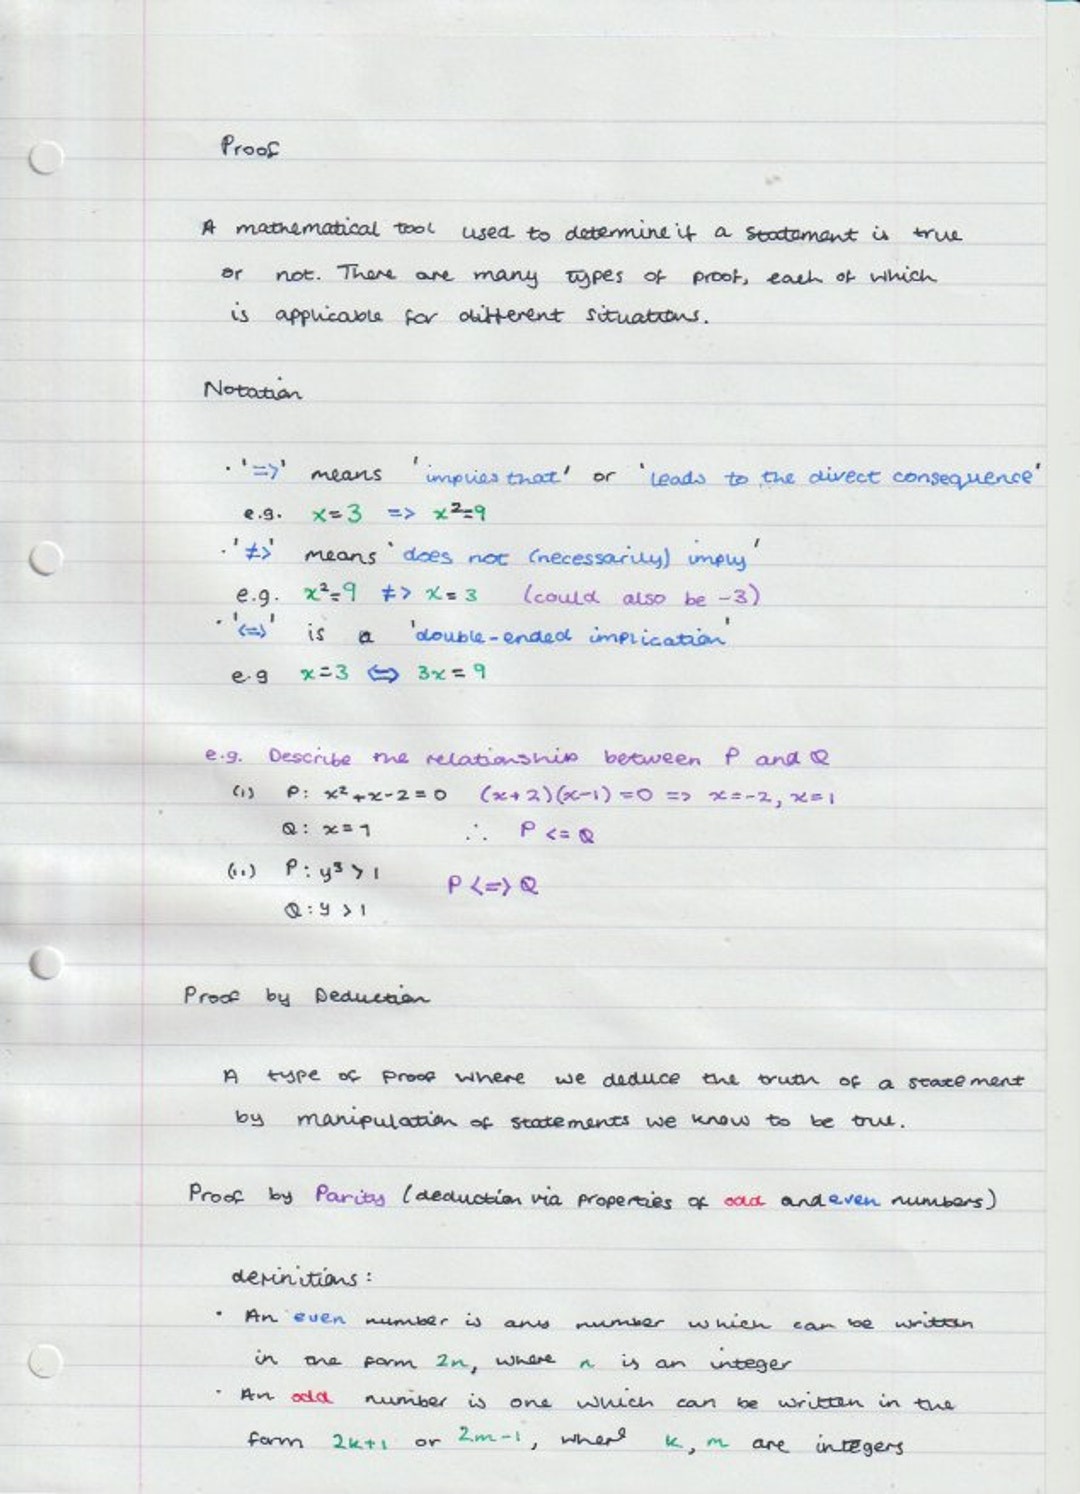 Proof
A mathematical tool used to determine if a statement is true
or not. There are many types of proof, each of which
is applicable for different situations.
Notation
· '=>' means 'implies that' or 'leads to the direct consequence'
e.g. x=3 => x²=9
· '≠>' means 'does not (necessarily) imply'
e.g. x²=9 ≠> x=3 (could also be -3)
· '<=>' is a 'double-ended implication'
e.g x=3 <=> 3x=9
e.g. Describe the relationship between P and Q
(i) P: x²+x-2=0 (x+2)(x-1)=0 => x=-2, x=1
Q: x=1 ∴ P <= Q
(ii) P: y³>1
P <=> Q
Q: y>1
Proof by Deduction
A type of proof where we deduce the truth of a statement
by manipulation of statements we know to be true.
Proof by Parity (deduction via properties of odd and even numbers)
definitions:
· An even number is any number which can be written
in the form 2n, where n is an integer
· An odd number is one which can be written in the
form 2k+1 or 2m-1, where k, m are integers